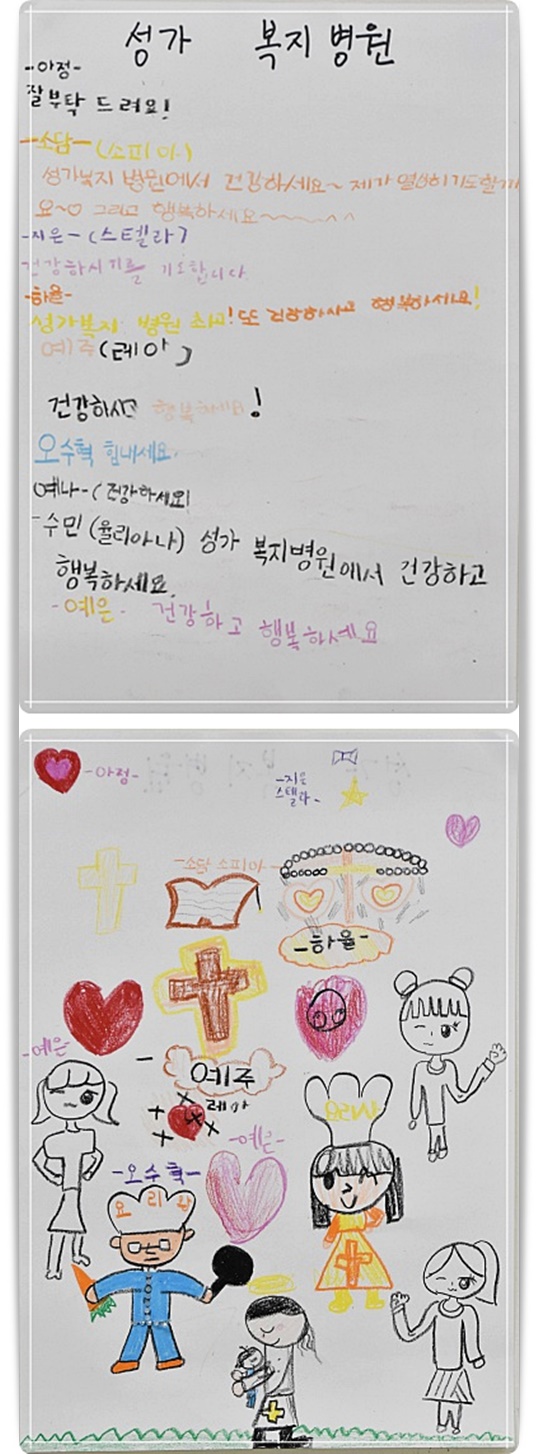 성가 복지 병원
-아정-
잘 부탁 드려요!
-소담- (소피아)
성가복지 병원에서 건강하세요~ 제가 열심히 기도할게
요~♡ 그리고 행복하세요~~~~^^
-지은- (스텔라)
건강하시기를 기도합니다.
-하율-
성가복지 병원 최고! 또 건강하시고 행복하세요!
예주 (레아)
건강하시고 행복하세요!
오수혁 힘내세요.
예나-(건강하세요)
-수민 (율리아나) 성가 복지병원에서 건강하고
행복하세요.
-예은- 건강하고 행복하세요
-아정-
-지은
스텔라-
-소담 소피아-
-하율-
-예은-
예주
레아
요리사
-예은-
-오수혁-
요리사